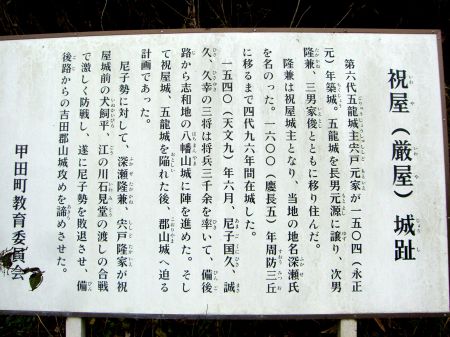 祝屋（厳屋）城趾
第六代五龍城主宍戸元家が一五〇四（永正
元）年築城。五龍城を長男元源に譲り、次男
隆兼、三男家俊とともに移り住んだ。
隆兼は祝屋城主となり、当地の地名深瀬氏
を名のった。一六〇〇（慶長五）年周防三丘
に移るまで四代九六年間在城した。
一五四〇（天文九）年六月、尼子国久、誠
久、久幸の三将は将兵三千余を率いて、備後
路から志和地の八幡山城に陣を進めた。そし
て祝屋城、五龍城を陥れた後、郡山城へ迫る
計画であった。
尼子勢に対して、深瀬隆兼、宍戸隆家が祝
屋城前の犬飼平、江の川石見堂の渡しの合戦
で激しく防戦し、遂に尼子勢を敗退させ、備
後路からの吉田郡山城攻めを諦めさせた。
甲田町教育委員会